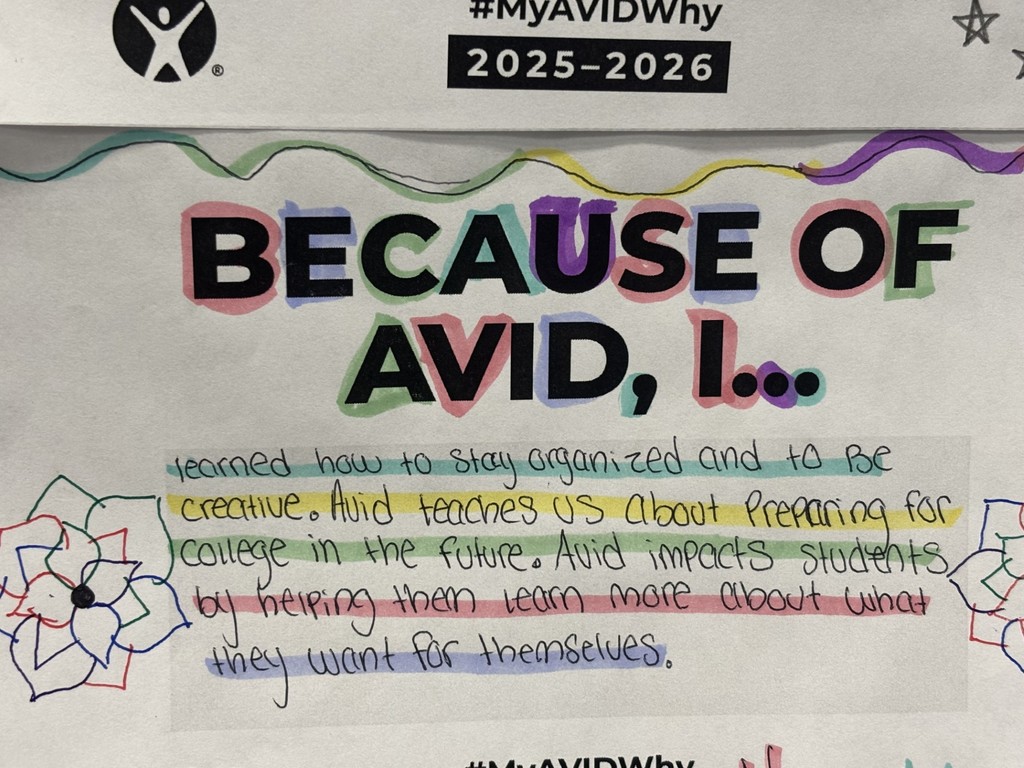 #MyAVIDWhy
®
2025–2026
BECAUSE OF
AVID, I...
learned how to stay organized and to Be
creative. Avid teaches us about Preparing for
college in the future. Avid impacts students
by helping them learn more about what
they want for themselves.
#MyAVIDWhy